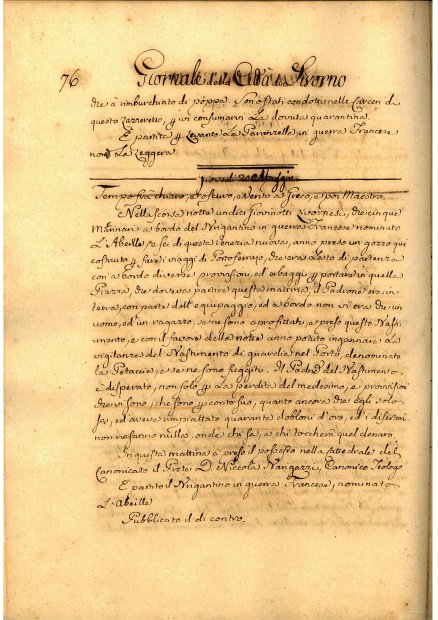 76 Giornale della Città di Livorno
che à rimburchiato di poppa. Sono stati condotti nelle Carceri di
questo Lazzeretto, per ivi consumare la dovuta quarantina.
È partita per Levante la in guerra Francese
La Leggera
giovedì 20 Maggio
Tempo frà chiaro, e oscuro, e vento a Greco, e poi Maestro.
Nella scorsa notte undici Giovinotti Livornesi, che cinque
Marinari a bordo del Brigantino in guerra Francese nominato
L'Abeille, e sei di questa Venezia nuova, anno preso un gozzo qui
costruito per fare i viaggi di Portoferrajo, che era lesto di partenza
con a bordo diverse provvisioni, ed abaggi per portare in quella
Piazza, che doveva partire questa mattina, il Padrone era in
terra, con parte dell'equipaggio, ed a bordo non vi era che un
uomo, ed un ragazzo, se ne sono approfittati, e preso questo Basti-
mento, e con il favore della notte anno potuto ingannare la
vigilanza del Bastimento di guardia nel Porto, denominato
La e se ne sono fuggiti. Il Padron del Bastimento,
è disperato, non solo per la perdita del medesimo, e provvisioni
che vi sono, che sono per conto suo, quanto ancora che egli solo
sa, ed aveva rimpiattato quaranta dobloni d'oro, ed i disertori
non ne sanno nulla, onde chi sa, a chi toccherà quel denaro.
In questa mattina à preso il possesso nella Cattedrale del
Canonicato il Prete D. Niccola Canonico Teologo
È partito il Brigantino in guerra Francese, nominato
L'Abeille
Pubblicato il dì contro.